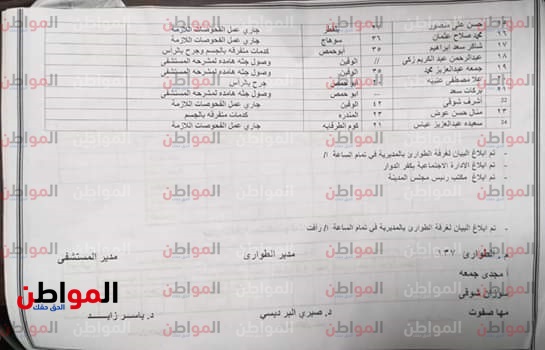 حسن على منصور بلقطر جاري عمل الفحوصات اللازمة
١٦ محمد صلاح عثمان ٣٦ سوهاج جاري عمل الفحوصات اللازمة
١٧ شاكر سعد ابراهيم ٣٥ ابوحمص كدمات متفرقه بالجسم وجرح بالرأس
١٨ عبدالرحمن عبد الكريم زكي // الوفين وصول جثه هامده لمشرحه المستشفى
١٩ جمعه عبدالعزيز محمد ٣٥ الوفين وصول جثه هامده لمشرحه المستشفى
مصطفى ابوحمص جرح بالرأس
٢١ بركات سعد ... ابوحمص وصول جثه هامده لمشرحه المستشفى
٢٢ أشرف شوقى ٤٢ الوفين جاري عمل الفحوصات اللازمة
٢٣ منال حسن عوض ٢٣ المندره كدمات متفرقه بالجسم
٢٤ سعيده عبدالعزيز عباس ٢١ كوم الطرفايه جاري عمل الفحوصات اللازمة
- تم ابلاغ البيان لغرفة الطوارئ بالمديرية في تمام الساعة /أ
- تم ابلاغ الادارة الاجتماعية بكفر الدوار
- تم ابلاغ مكتب رئيس مجلس المدينة
- تم ابلاغ البيان لغرفة الطوارئ بالمديرية في تمام الساعة /أ رأفت
م . الطوارئ ١٣٧ مدير الطوارئ مدير المستشفى
أ مجدى جمعه
سوزان شوقى
مها صفوت د. صبري البرديسي د. ياسر زايد
المواطن
الحق حقك